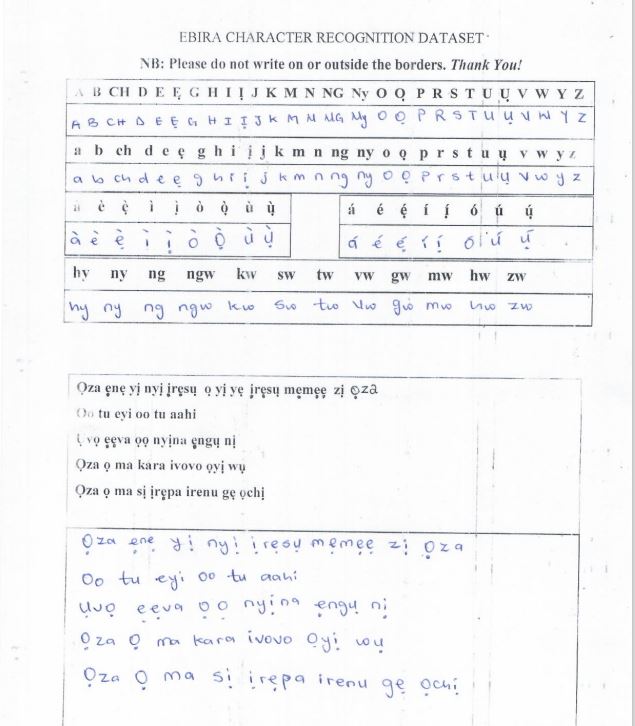 EBIRA CHARACTER RECOGNITION DATASET
NB: Please do not write on or outside the borders. Thank You!
A B CH D E Ẹ G H I Ị J K M N NG Ny O Ọ P R S T U Ụ V W Y Z
A B CH D E Ẹ G H I Ị J K M N NG Ny O Ọ P R S T U Ụ V W Y Z
a b ch d e ẹ g h i ị j k m n ng ny o ọ p r s t u ụ v w y z
a b ch d e ẹ g h i ị j k m n ng ny o ọ p r s t u ụ v w y z
a è ẹ̀ ì ị̀ ò ọ̀ ù ụ̀ á é ẹ́ í ị́ ó ú ụ́
à è ẹ̀ ì ị̀ ò ọ̀ ù ụ̀ á é ẹ́ í ị́ ó ú ụ́
hy ny ng ngw kw sw tw vw gw mw hw zw
hy ny ng ngw kw sw tw vw gw mw hw zw
Ọza ẹnẹ yị nyị ịrẹsụ ọ yị yẹ ịrẹsụ mẹmẹẹ zị ọza
Oo tu eyi oo tu aahi
vọ ẹẹva ọọ nyịna ẹngụ nị
Ọza ọ ma kara ivovo ọyị wụ
Ọza ọ ma sị ịrẹpa irenu gẹ ọchị
Ọza ẹnẹ yị nyị ịrẹsụ mẹmẹẹ zị Ọza
Oo tu eyi oo tu aahi
Ụvọ ẹẹva ọọ nyịna ẹngụ nị
Ọza Ọ ma kara ivovo Ọyị wụ
Ọza Ọ ma sị ịrẹpa irenu gẹ ọchị